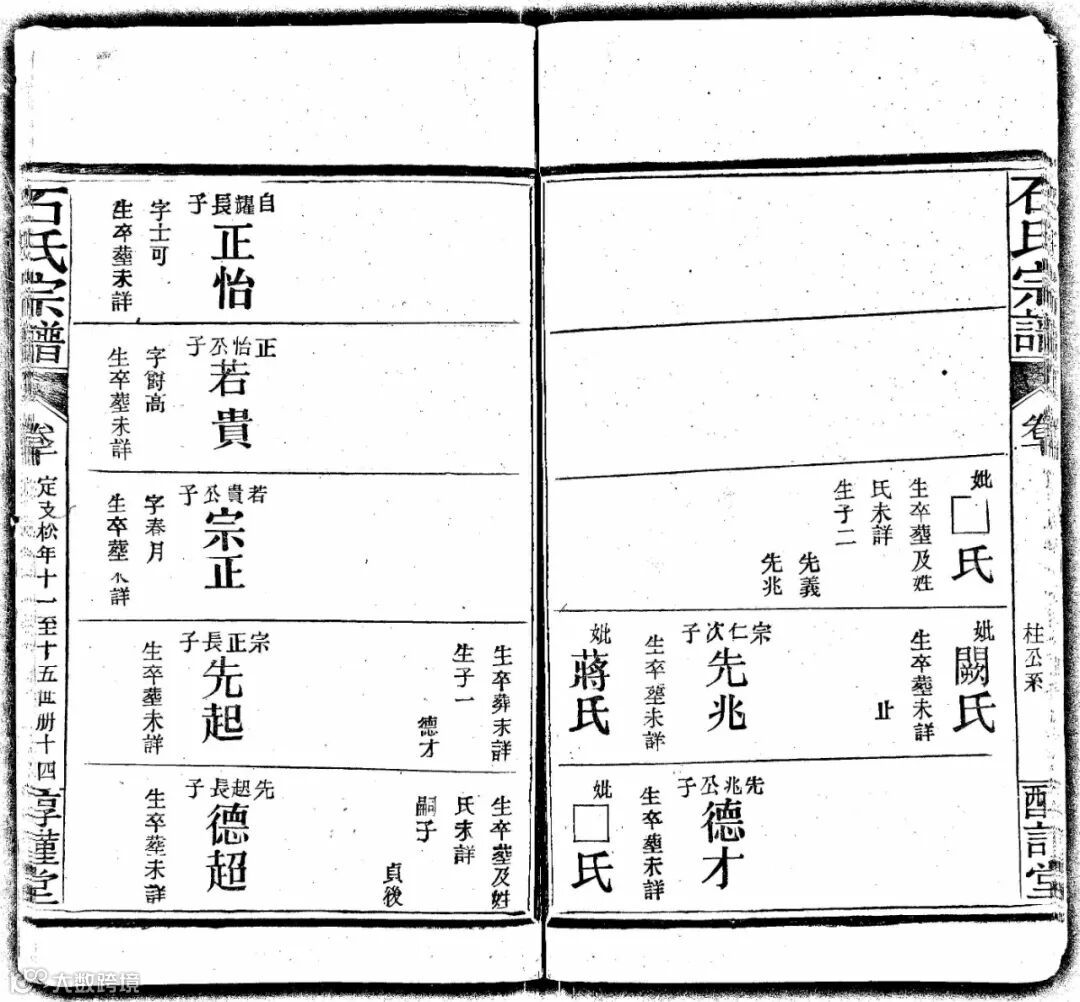 石氏宗譜
卷十
桂公系
妣□氏
生卒塟及姓
氏未詳
生子二
先義
先兆
妣闕氏
生卒塟未詳
止
宗仁次子
先兆
生卒塟未詳
妣蔣氏
生卒葬未詳
生子一
德才
先兆公子
德才
生卒塟未詳
妣□氏
生卒塟及姓
氏未詳
嗣子
貞後
自耀長子
正怡
字士可
生卒塟未詳
正怡公子
若貴
字爵高
生卒塟未詳
若貴公子
宗正
字春月
生卒塟未詳
宗正長子
先起
生卒塟未詳
先起長子
德超
生卒塟未詳
石氏宗譜
卷十
定支松年十一至十五世册十四
大数跨境